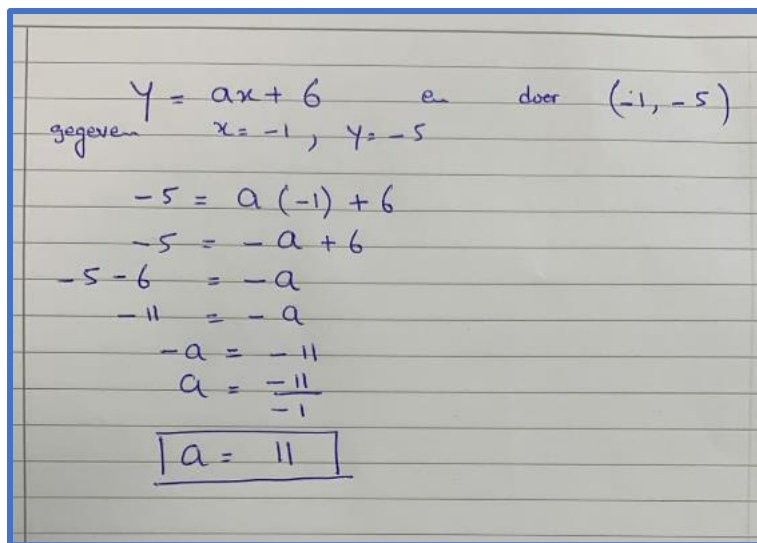 y = ax + 6 en door (-1, -5)
gegeven x = -1, y = -5
-5 = a (-1) + 6
-5 = -a + 6
-5 - 6 = -a
-11 = -a
-a = -11
a = -11/-1
a = 11